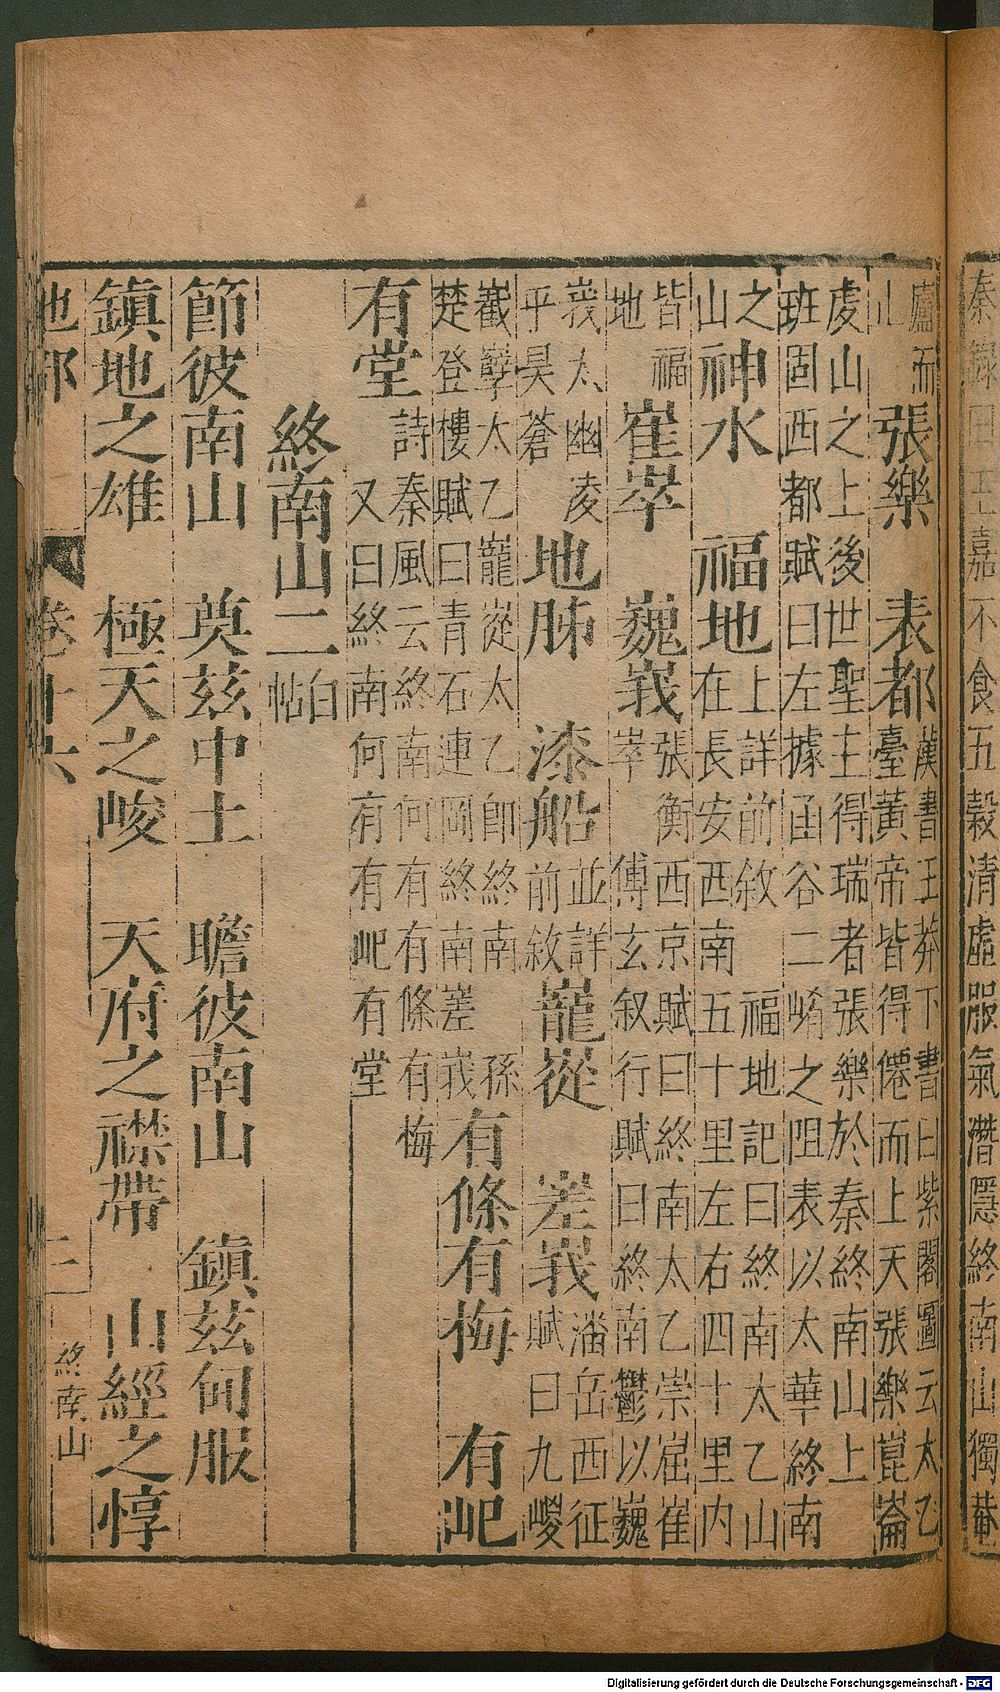 秦錄曰王嘉不食五穀清虛服氣潛隱終南山獨菴
廬而
山
張樂　表都
漢書王莽下書曰紫閣圖云太乙
臺黃帝皆得僊而上天張樂崑崙
虔山之上後世聖主得瑞者張樂於秦終南山上
班固西都賦曰左據函谷二崤之阻表以太華終南
之
山
神水　福地
上詳前敘　福地記曰終南太乙山
在長安西南五十里左右四十里內
皆福
地
崔崒　巍峩
張衡西京賦曰終南太乙崇崛崔
崒　傅玄叙行賦曰終南鬱以巍
峩太幽凌
平昊蒼
地肺　漆船
並詳
前敘
巃嵸　嵳峩
潘岳西征
賦曰九嵕
嶻嶭太乙巃嵸太乙即終南　孫
楚登樓賦曰青石連岡終南嵳峩
有條有梅　有屺
有堂
詩秦風云終南何有有條有梅
又曰終南何有有屺有堂
終南山二
白
帖
節彼南山　莫茲中土　瞻彼南山　鎮茲何服
鎮地之雄　極天之峻　天府之襟帶　山經之惇
地部　卷十六　三　終南山
Digitalisierung gefördert durch die Deutsche Forschungsgemeinschaft - DFG